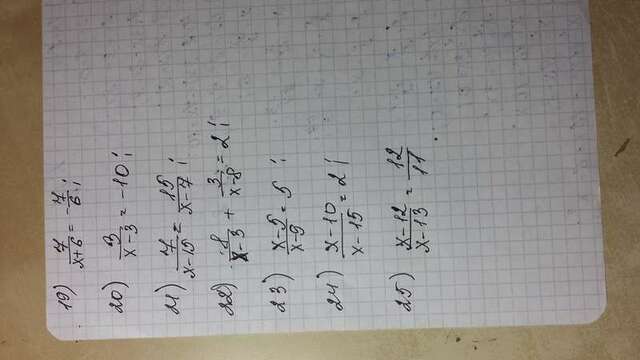 19) 7/(x+6) = -7/6;
20) 3/(x-3) = -10;
21) 7/(x-15) = 15/(x-7);
22) 8/(x-3) + 3/(x-8) = 2;
23) (x-5)/(x-9) = 5;
24) (x-10)/(x-15) = 2;
25) (x-12)/(x-13) = 12/11